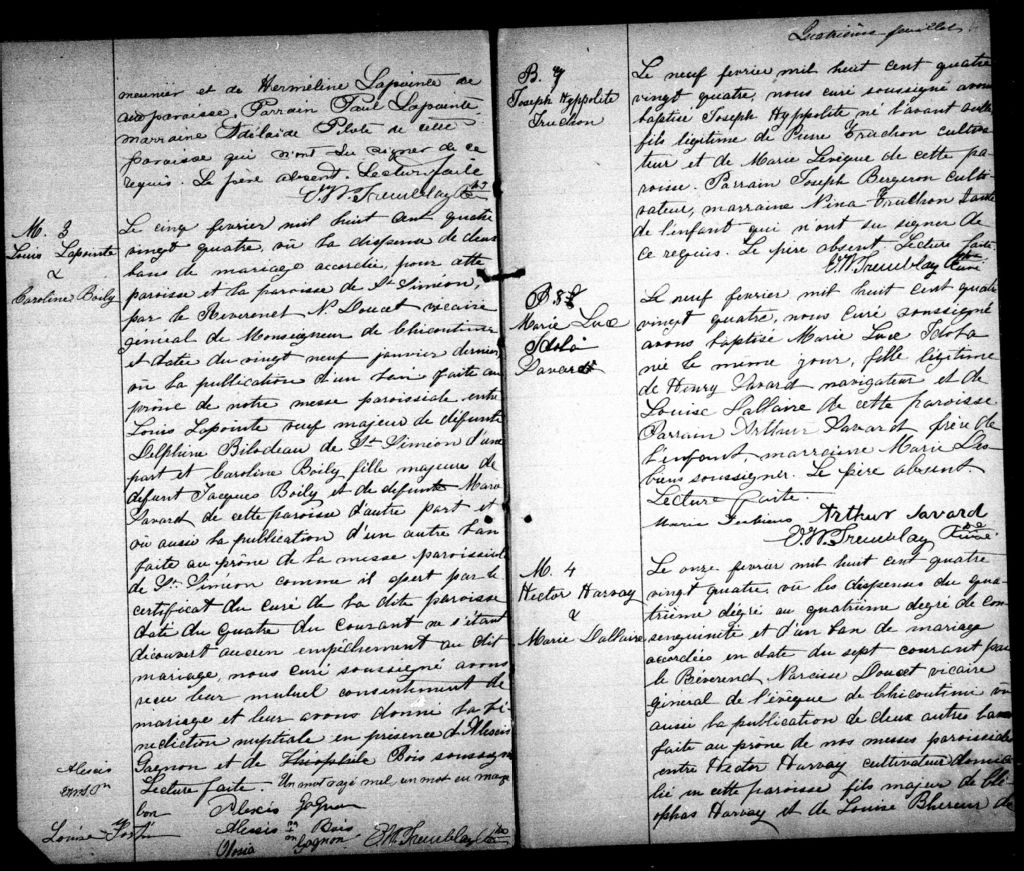 meunier et de Herméline Lapointe de
cette paroisse. Parrain Paul Lapointe
marraine Adélaide Plote de cette
paroisse qui n'ont su signer de ce
requis. Le père absent. Lecture faite
M. 3
Louis Lapointe
&
Caroline Boily
Le cinq fevrier mil huit cent quatre
vingt quatre, vû la dispense de deux
bans de mariage accordée, pour cette
paroisse et la paroisse de St Siméon,
par le Reverend N. Doucet vicaire
général de Monseigneur de Chicoutimi
et date du vingt neuf janvier dernier
vû la publication d'un ban faite au
prône de notre messe paroissiale entre
Louis Lapointe veuf majeur de défunte
Delphine Bilodeau de St Siméon d'une
part et Caroline Boily fille majeure de
défunt Jacques Boily et de defunte Marie
Savard de cette paroisse d'autre part et
vû aussi la publication d'un autre ban
faite au prône de la messe paroissiale
de St. Siméon comme il apert par le
certificat du curé de la dite paroisse
daté du quatre du courant ne s'étant
découvert aucun empêchement au dit
mariage, nous curé soussigné avons
reçu leur mutuel consentement de
mariage et leur avons donné la bé-
nediction nuptiale en presence d'Alexis
Gagnon et de Théophile Bois soussignés
Lecture faite. Un mot rayé nul, un mot en marge
bon
Alexis Gagnon
Alexis Bois
Gagnon
Alexis
Louise
feuillet
B. 7
Joseph Hyppolite
Truchon
Le neuf fevrier mil huit cent quatre
vingt quatre, nous curé soussigné avons
baptisé Joseph Hyppolite né l'avant veille
fils légitime de Pierre Truchon cultiva-
teur et de Marie Levêque de cette pa-
roisse. Parrain Joseph Bergeron culti-
vateur, marraine Nina Truchon tante
de l'enfant qui n'ont su signer de
ce requis. Le père absent Lecture faite
O. W. Tremblay Ptre Curé
B. 8
Marie Luce
Idola
Savard
Le neuf fevrier mil huit cent quatre
vingt quatre, nous curé soussigné
avons baptisé Marie Luce Idola
née le même jour, fille légitime
de Henry Savard navigateur et de
Louise Dallaire de cette paroisse
Parrain Arthur Savard frère de
l'enfant marraine Marie Des-
biens soussignés. Le père absent.
Lecture faite.
Marie Desbiens Arthur Savard
O. W. Tremblay Ptre Curé
M. 4
Hector Harvay
&
Marie Dallaire
Le onze fevrier mil huit cent quatre
vingt quatre, vû les dispenses du qua-
trième dégré au quatrième degré de con-
senguinité et d'un ban de mariage
accordées en date du sept courant par
le Révérend Narcisse Doucet vicaire
général de l'évêque de Chicoutimi vû
aussi la publication de deux autres bans
faite au prône de nos messes paroissiales
entre Hector Harvay cultivateur domici-
lié en cette paroisse fils majeur de Clé-
ophas Harvay et de Louise Bhereur de